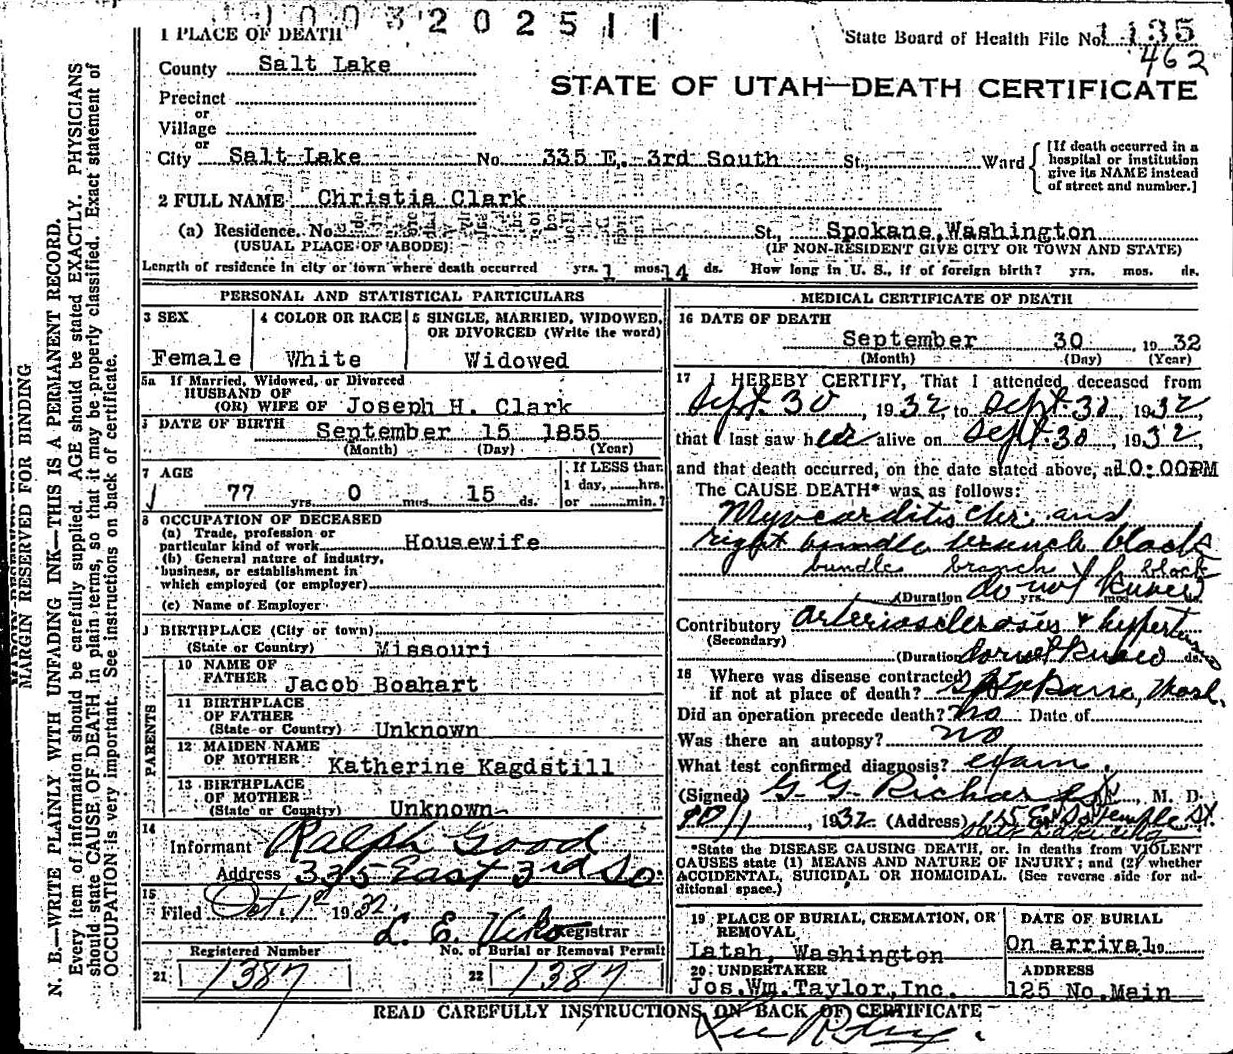 1003202511
1 PLACE OF DEATH
State Board of Health File No. 1135
462
County Salt Lake
STATE OF UTAH—DEATH CERTIFICATE
Precinct
or
Village
or
City Salt Lake No. 335 E. 3rd South St., Ward
[If death occurred in a hospital or institution give its NAME instead of street and number.]
2 FULL NAME Christia Clark
(a) Residence. No. St., Spokane, Washington
(USUAL PLACE OF ABODE) (IF NON-RESIDENT GIVE CITY OR TOWN AND STATE)
Length of residence in city or town where death occurred yrs. 1 mos. 14 ds. How long in U. S., if of foreign birth? yrs. mos. ds.
PERSONAL AND STATISTICAL PARTICULARS
3 SEX
Female
4 COLOR OR RACE
White
5 SINGLE, MARRIED, WIDOWED, OR DIVORCED (Write the word)
Widowed
5a If Married, Widowed, or Divorced
HUSBAND OF
(OR) WIFE OF Joseph H. Clark
DATE OF BIRTH September 15 1855
(Month) (Day) (Year)
7 AGE
77 yrs. 0 mos. 15 ds.
If LESS than
1 day, hrs.
or min.?
8 OCCUPATION OF DECEASED
(a) Trade, profession or
particular kind of work Housewife
(b) General nature of industry,
business, or establishment in
which employed (or employer)
(c) Name of Employer
BIRTHPLACE (City or town)
(State or Country) Missouri
PARENTS
10 NAME OF
FATHER Jacob Boahart
11 BIRTHPLACE
OF FATHER
(State or Country) Unknown
12 MAIDEN NAME
OF MOTHER Katherine Kagdstill
13 BIRTHPLACE
OF MOTHER
(State or Country) Unknown
14
Informant Ralph Good
Address 335 East 3rd So.
15
Filed Oct. 1st 1932. L. E. Viko Registrar
Registered Number No. of Burial or Removal Permit
21 1387 22 1387
MEDICAL CERTIFICATE OF DEATH
16 DATE OF DEATH
September 30, 1932
(Month) (Day) (Year)
17 I HEREBY CERTIFY, That I attended deceased from
Sept. 30, 1932 to Sept. 30, 1932,
that I last saw her alive on Sept. 30, 1932,
and that death occurred, on the date stated above, at 10:00PM
The CAUSE DEATH* was as follows:
Myocarditis chr. and
right bundle branch block
bundle branch block
(Duration do not know yrs. mos. ds.
Contributory arteriosclerosis & hypertension
(Secondary)
(Duration do not know ds.
18 Where was disease contracted
if not at place of death? Wash.
Did an operation precede death? no Date of
Was there an autopsy? no
What test confirmed diagnosis? exam.
(Signed) G. G. Richards, M. D.
10/1, 1932 (Address) 155 E. So. Temple St.
Salt Lake City
*State the DISEASE CAUSING DEATH, or, in deaths from VIOLENT
CAUSES state (1) MEANS AND NATURE OF INJURY; and (2) whether
ACCIDENTAL, SUICIDAL OR HOMICIDAL. (See reverse side for additional space.)
19 PLACE OF BURIAL, CREMATION, OR REMOVAL
Latah, Washington
DATE OF BURIAL
On arrival 19
20 UNDERTAKER
Jos. Wm. Taylor, Inc.
ADDRESS
125 No. Main
READ CAREFULLY INSTRUCTIONS ON BACK OF CERTIFICATE
MARGIN RESERVED FOR BINDING
N. B.—WRITE PLAINLY WITH UNFADING INK—THIS IS A PERMANENT RECORD.
Every item of information should be carefully supplied. AGE should be stated EXACTLY. PHYSICIANS
should state CAUSE OF DEATH in plain terms, so that it may be properly classified. Exact statement of
OCCUPATION is very important. See instructions on back of certificate.